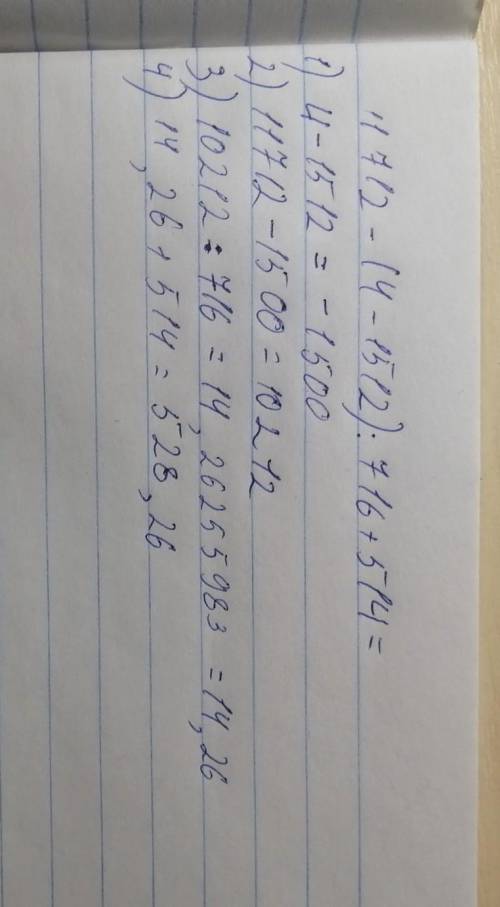 11712 - (4 - 1512) : 716 + 514 =
1) 4 - 1512 = - 1500
2) 11712 - 1500 = 10212
3) 10212 : 716 = 14,26255983 = 14,26
4) 14,26 + 514 = 528,26